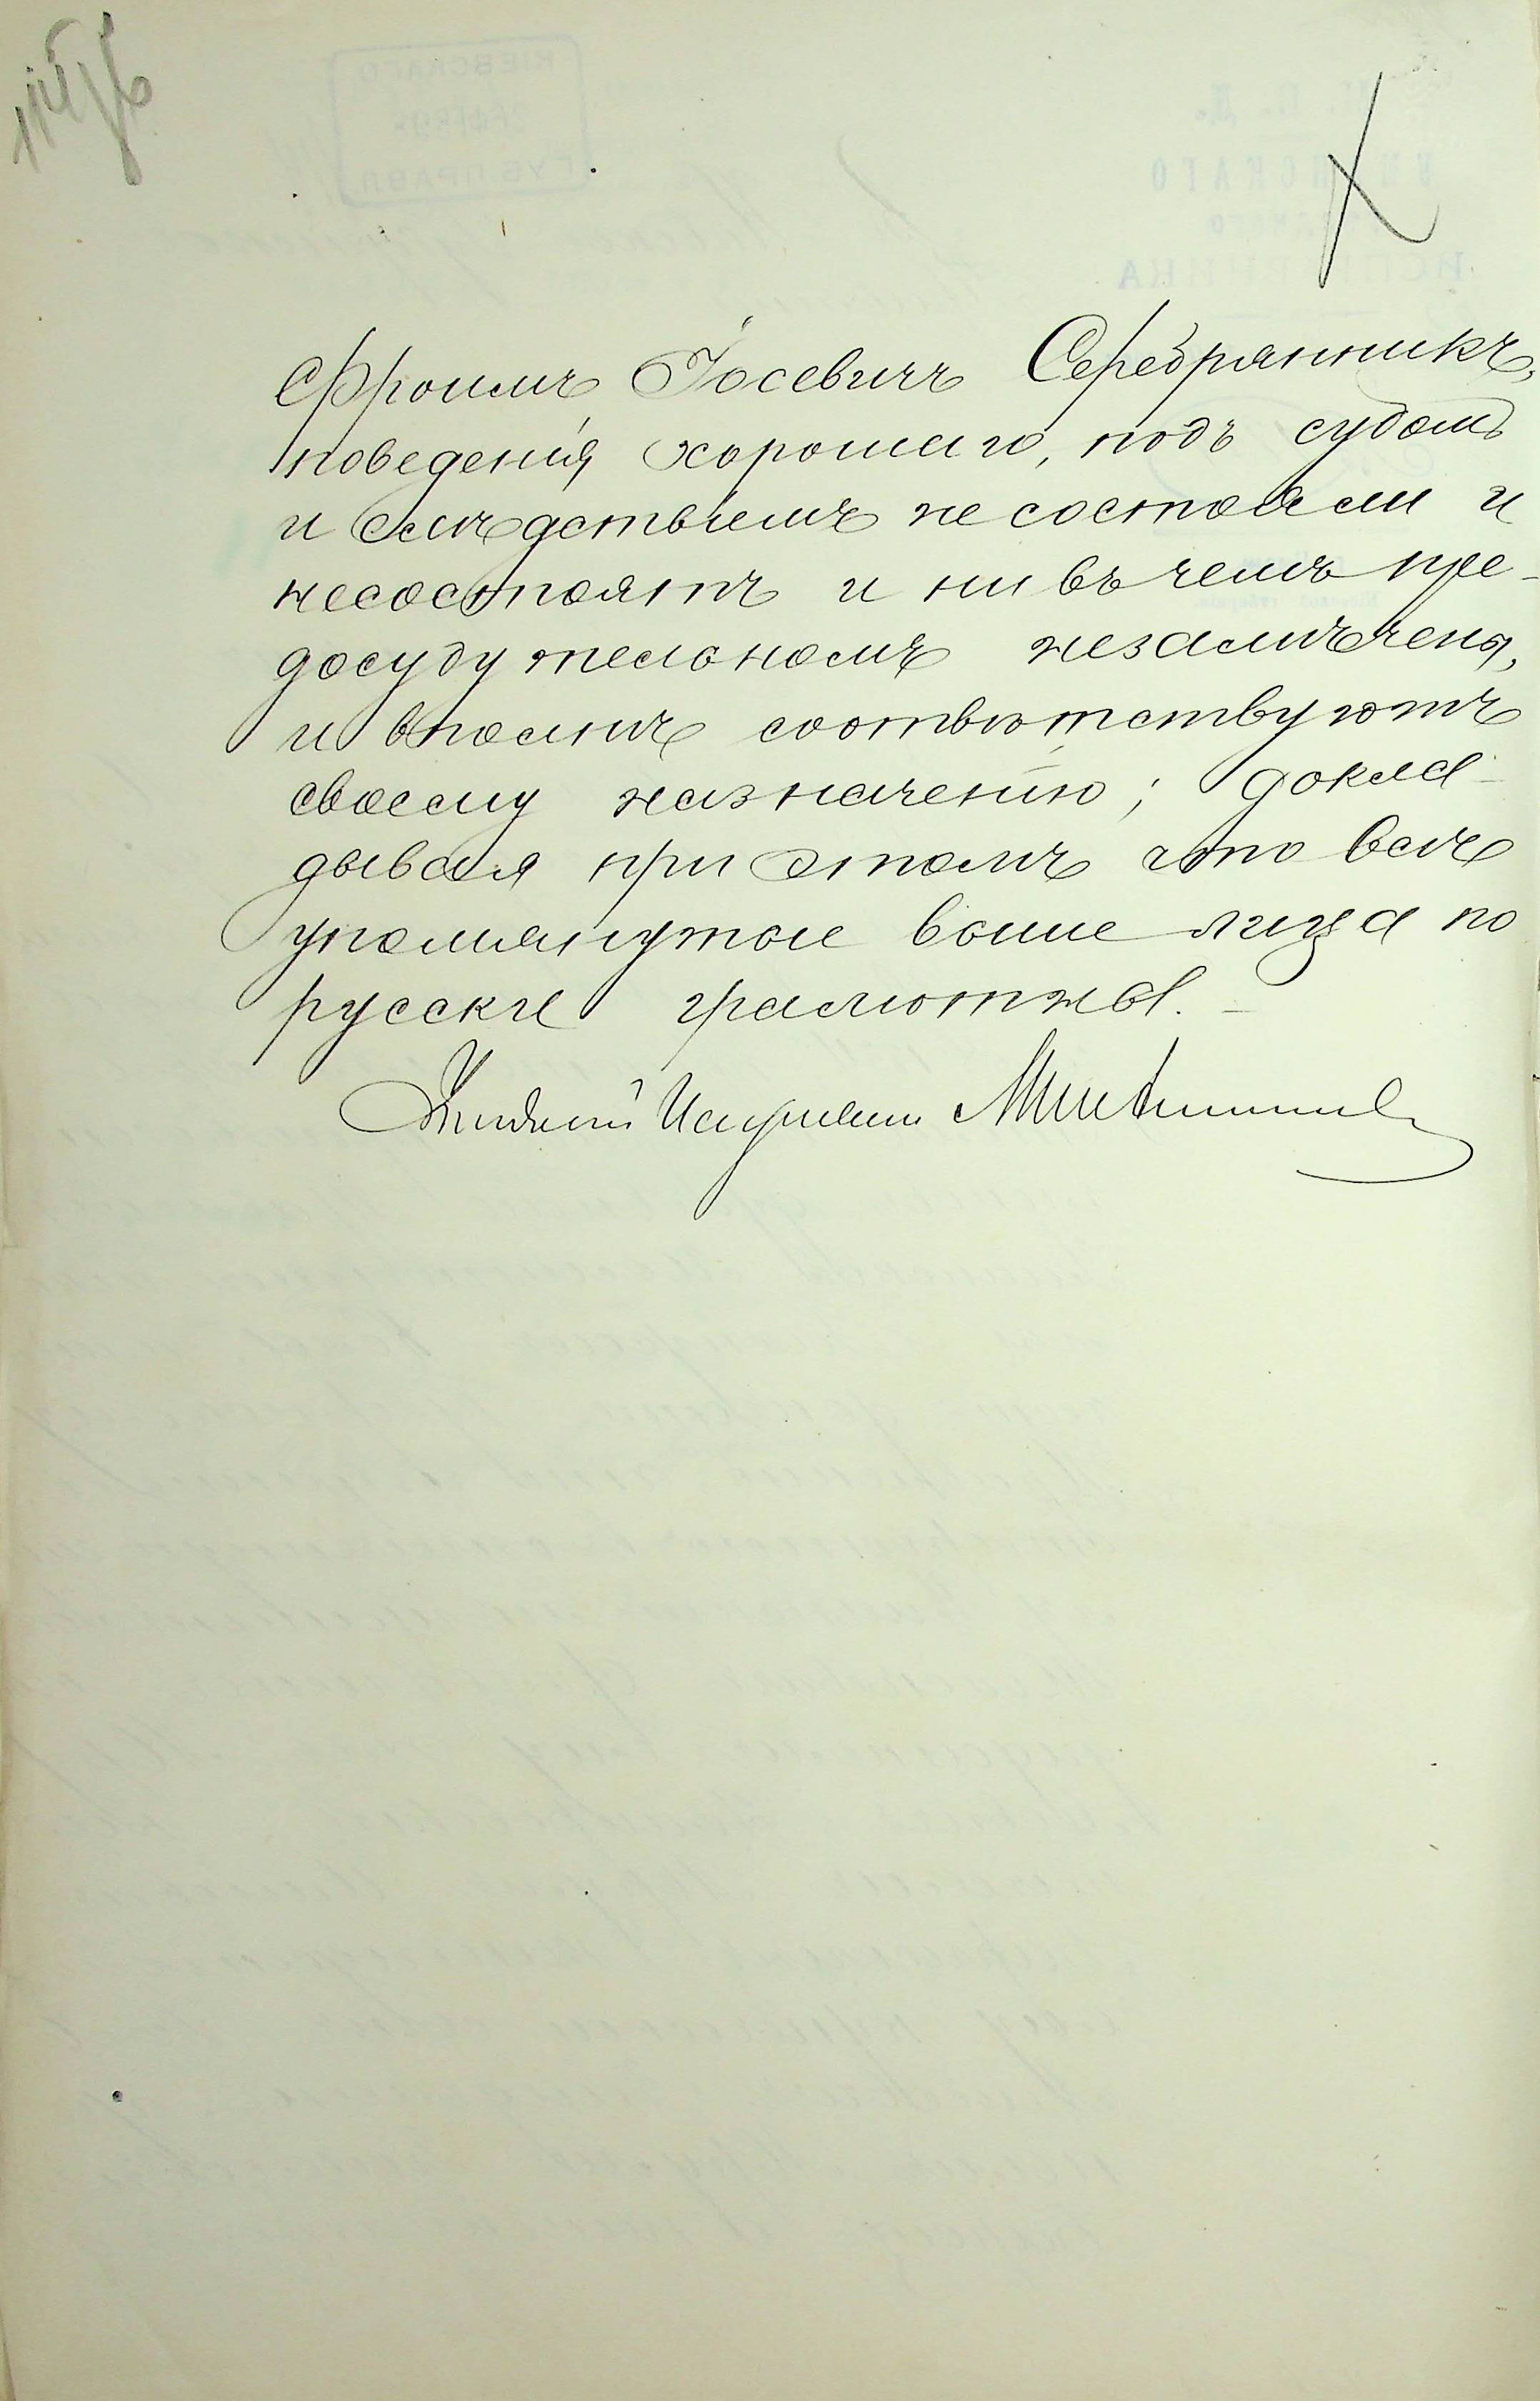 Фроимъ Іосевичъ Серебрянникъ,
поведенія хорошаго, подъ судомъ
и слѣдствіемъ не состояли и
несостоятъ и ни въ чемъ пре-
досудутельномъ незамѣчены,
и вполнѣ соотвѣтствуютъ
своему назначенію; докла-
дывая при этомъ что всѣ
упомянутые выше лица по
русски грамотны.
Уѣздный Исправникъ